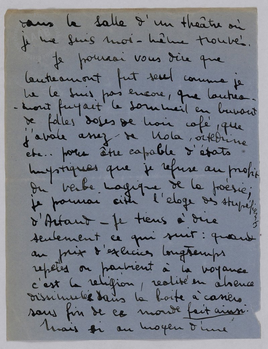 dans la salle d'un théâtre où
je me suis moi-même trouvé.
Je pourrai vous dire que
Lautréamont fut seul comme je
ne le suis pas encore, que Lautréa-
mont fuyait le sommeil en buvant
de fortes doses de noir café, que
j'avale assez de Kola, ortédrine
etc.. pour être capable d'états
mystiques que je refuse au profit
du verbe magique de la poésie,
je pourrai citer l'éloge des stupéfiants
d'Artaud - je tiens à dire
seulement ce qui suit : quand
au prix d'exercices longtemps
répétés on parvient à la voyance
c'est la religion, réalisé en absence
dissimulée dans la boîte à casiers
sans fin de ce monde fait ainsi.
Mais si au moyen d'une